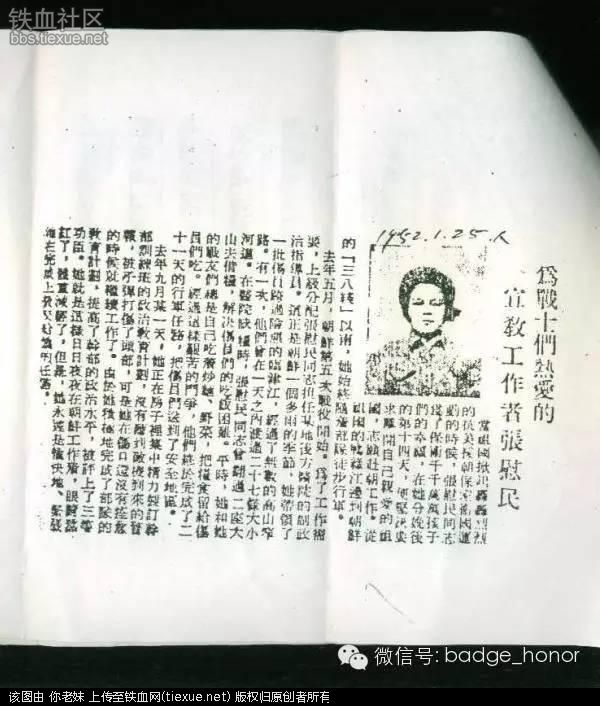 铁血社区
bbs.tiexue.net
為戰士們熱愛的
宣教工作者張慰民
1952.1.25.
當祖國掀起轟轟烈烈
的抗美援朝保家衛國運
動的時候，張慰民同志
爲了保衛千千萬萬孩子
們的幸福，在她分娩後
的第十四天，便堅決要
求離開自己親愛的祖
國，志願赴朝工作。從
祖國的鴨綠江邊到朝鮮
的「三八綫」以南，她始終隨着部隊徒步行軍。
去年五月，朝鮮第五次戰役開始，爲了工作需
要，上級分配張慰民同志担任某地後方醫院的副政
治指導員。這正是朝鮮一個多雨的季節，她帶領了
一批傷員跨過險惡的臨津江，經過了無數的高山窄
路。有一次，他們曾在一天之內渡過二十七條大小
河道。在醫院缺糧時，張慰民同志曾翻過二座大
山去借糧，解決傷員們的吃飯困難。平時，她和她
的戰友們總是自己吃着炒麵，野菜，把糧食留給傷
員們吃。經過這樣艱苦的鬥爭，他們終於完成了二
十一天的行軍任務，把傷員們送到了安全地區。
去年九月某一天，她正在房子裡集中精力製訂幹
部訓練班的政治教育計劃，沒有聽到敵機到來的警
報，被炸彈打傷了頭部，可是她在傷口還沒有痊愈
的時候就繼續工作了。由於她積極地完成了部隊的
教育計劃，提高了幹部的政治水平，被評上了三等
功臣。她就是這樣日日夜夜在朝鮮工作着，眼睛熬
紅了，體重減輕了，但是，她永遠是愉快地、緊張
地在完成上級交給她的任務。
微信号: badge_honor
该图由 你老妹 上传至铁血网(tiexue.net) 版权归原创者所有